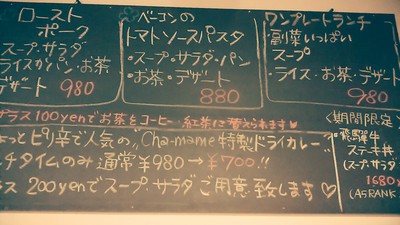 ロースト
ポーク
スープ・サラダ
ライスかパン・お茶
デザート 980
ベーコンの
トマトソースパスタ
・スープ・サラダ・パン
・お茶・デザート
880
ワンプレートランチ
・副菜いっぱい
・スープ
・ライス・お茶・デザート
980
プラス100yenでお茶をコーヒー・紅茶に替えられます♥
ょっとピリ辛で人気の"Cha-mame特製ドライカレー"
チタイムのみ 通常¥980→¥700!!
ス 200yenでスープ・サラダご用意致します♡
〈期間限定〉
飛騨牛
ステーキ丼
(スープ・サラダ
1680
(A5RANK